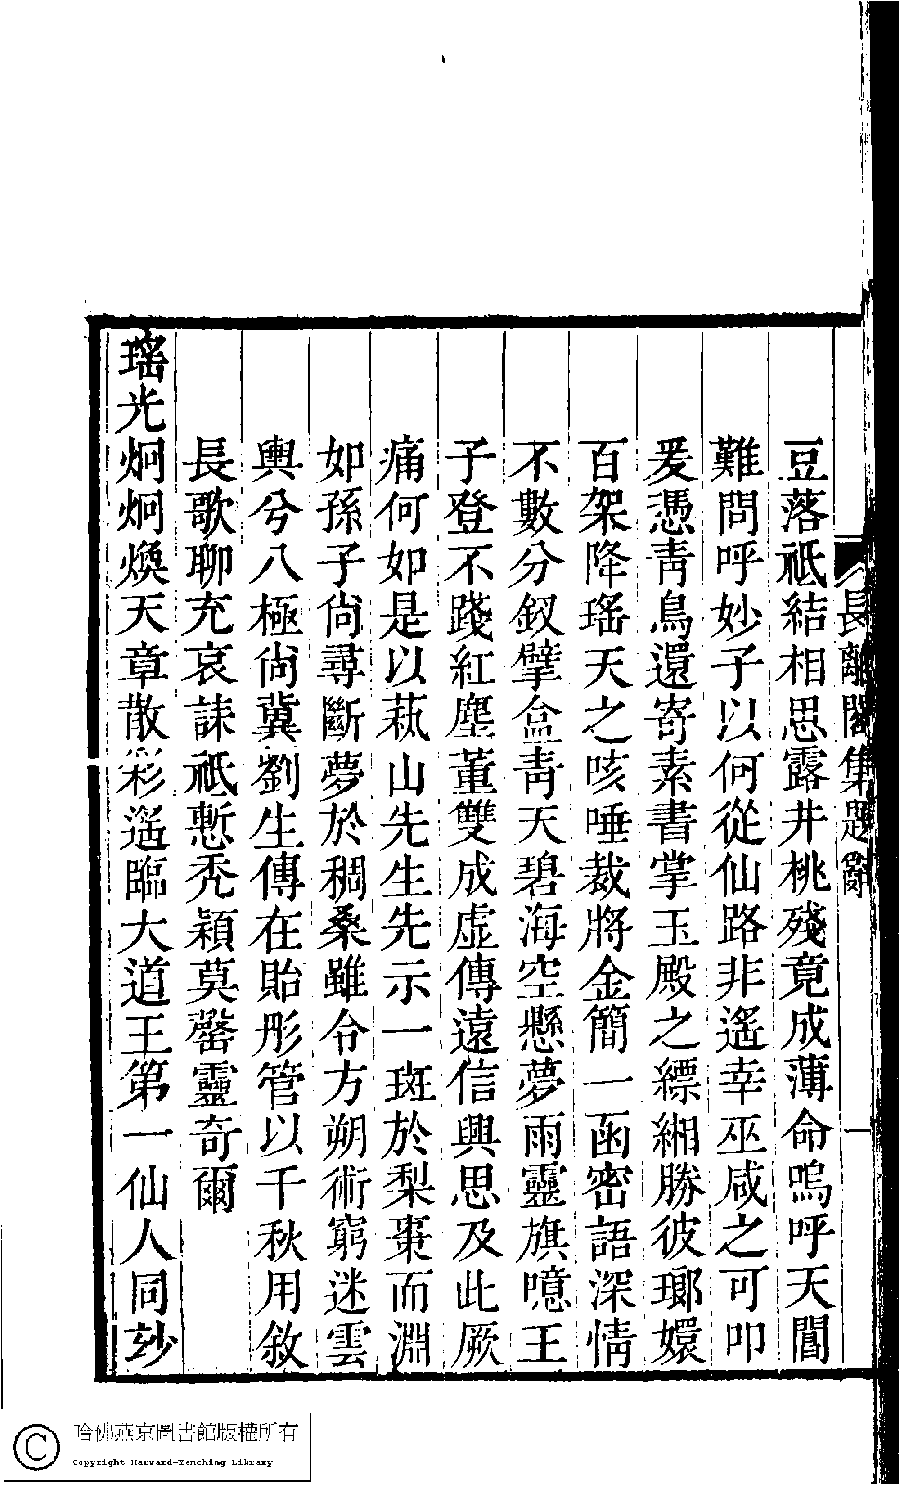 長離閣集題辭
一
豆落祇結相思露井桃殘竟成薄命嗚呼天閶
難問呼妙子以何從仙路非遙幸巫咸之可叩
爰憑靑鳥還寄素書掌玉殿之縹緗勝彼瑯嬛
百架降瑤天之咳唾裁將金簡一函密語深情
不數分釵擘盒靑天碧海空懸夢雨靈旗噫王
子登不踐紅塵董雙成虛傳遠信興思及此厥
痛何如是以菰山先生先示一斑於梨棗而淵
如孫子尙尋斷夢於稠桑雖令方朔術窮迷雲
輿兮八極尙冀劉生傳在貽彤管以千秋用敘
長歌聊充哀誄祇慙禿穎莫罄靈奇爾
瑤光炯炯煥天章散彩遙臨大道王第一仙人同玅
哈佛燕京圖書館版權所有
Copyright Harvard-Yenching Library